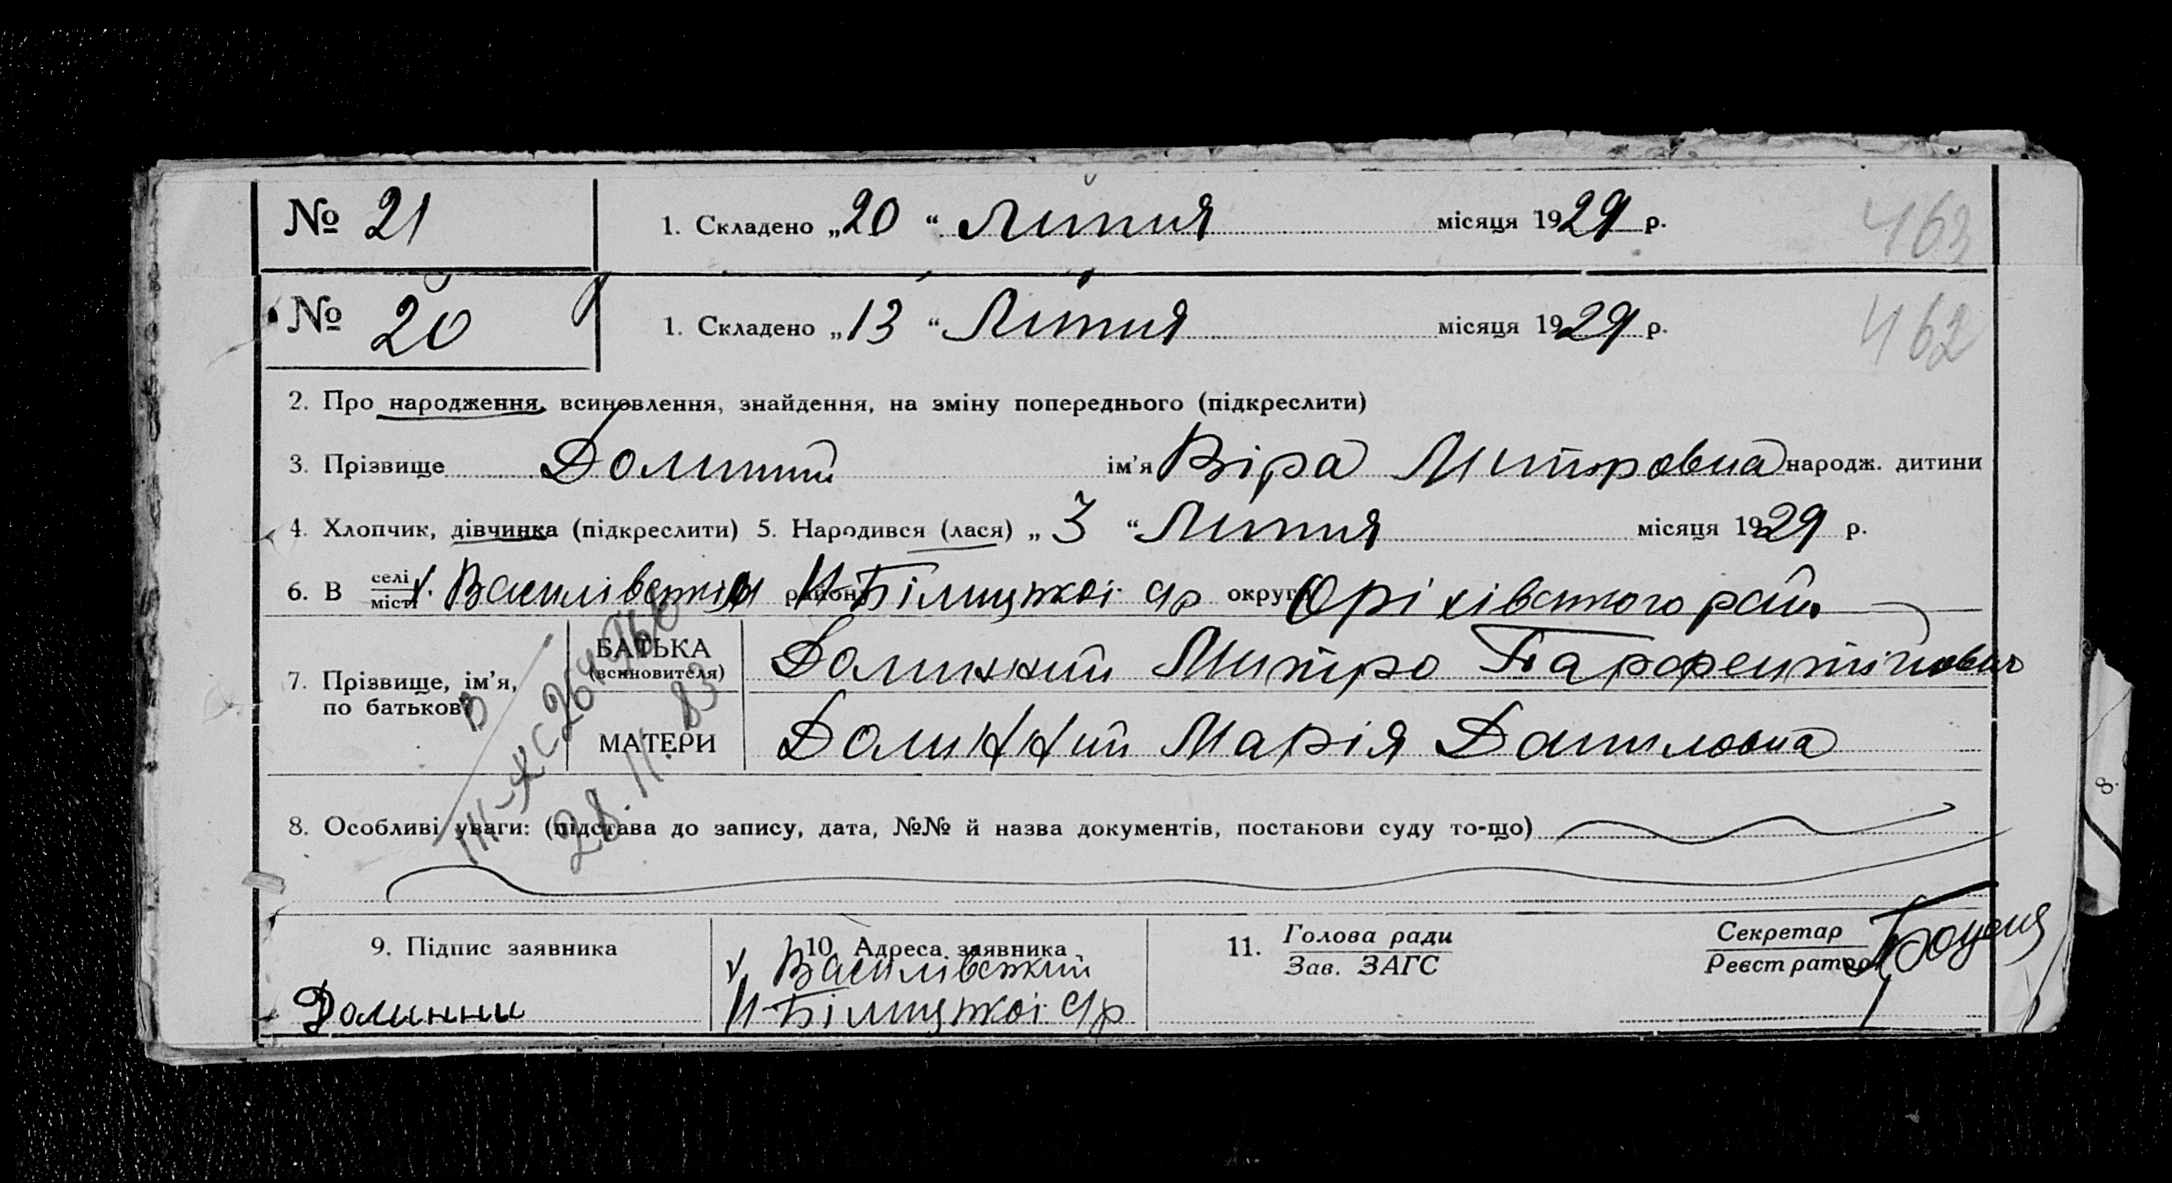 № 21 1. Складено „20“ Липня місяця 1929 р. 463
№ 20 1. Складено „13“ Липня місяця 1929 р. 462
2. Про народження, всиновлення, знайдення, на зміну попереднього (підкреслити)
3. Прізвище Долиний ім'я Віра Митровна народж. дитини
4. Хлопчик, дівчинка (підкреслити) 5. Народився (лася) „3“ Липня місяця 1929 р.
6. В селі/місті х. Василівський району Н-Білицької с/р округи Оріхівського рай.
7. Прізвище, ім'я, по батькові
БАТЬКА (всиновителя) Долинний Митро Парфентійович
МАТЕРИ Долинний Марія Даниловна
28.11.83
8. Особливі уваги: (підстава до запису, дата, №№ й назва документів, постанови суду то-що)
9. Підпис заявника
Долинни
10. Адреса заявника
х. Василівський
Н-Білицької с/р
11. Голова ради
Зав. ЗАГС
Секретар
Реєстратор
8.